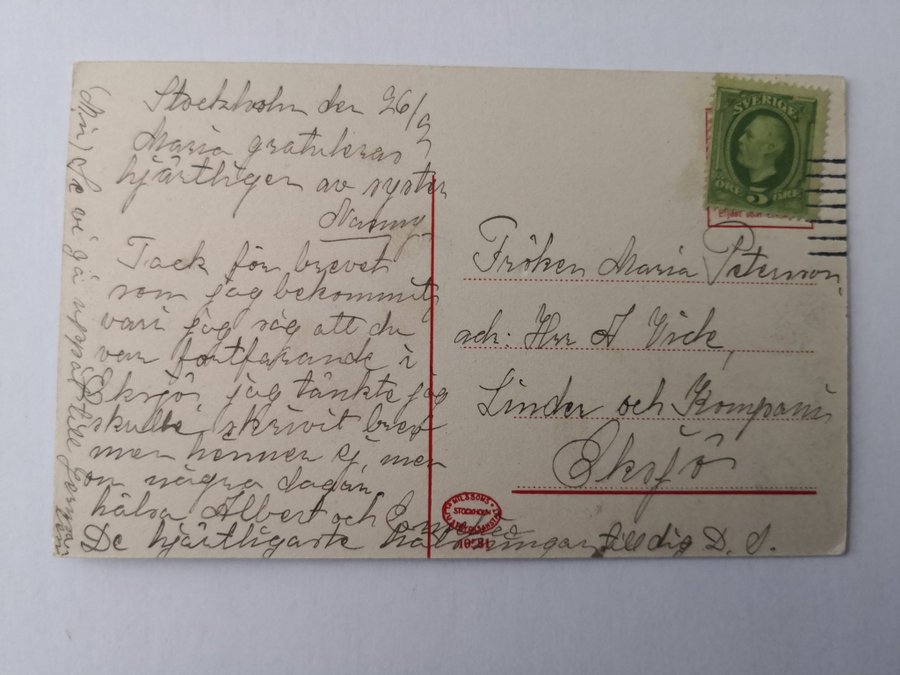 Stockholm den 26/9
Maria gratuleras
hjärtligen av syster
Nanny
Tack för brevet
som jag bekommit
vari jag såg att du
var fortfarande i
Eksjö, jag tänkte jag
skulle skrivit brev
men hinner ej men
om några dagar
hälsa Albert och
De hjärtligaste hälsningar till dig D. S.
vi gå uppåt
SVERIGE
ÖRE 5 ÖRE
Fröken Maria Peterson,
adr. Herr A Vick,
Linder och Kompani
Eksjö
NILSSONS
STOCKHOLM